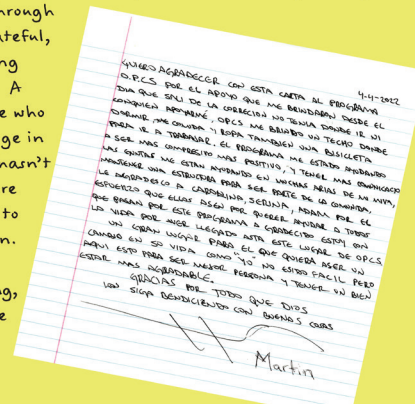 hrough
teful,
ng
A
e who
ge in
hasn't
re
to
n.
g,
e
4-4-2022
QUIERO AGRADECER CON ESTA CARTA AL PROGRAMA
O.P.C.S POR EL APOYO QUE ME BRINDARON DESDE EL
DIA QUE SALI DE LA CORRECION NO TENIA DONDE IR NI
CONQUIEN APOYARME, OPCS ME BRINDO UN TECHO DONDE
DORMIR, ME COMIDA Y ROPA TAMBIEN UNA BISICLETA
PARA IR A TRABAJAR. EL PROGRAMA ME ESTADO AYUDANDO
A SER MAS COMPRECIVO MAS POSITIVO, Y TENER MAS COMUNICACIO
LAS ME ESTAN AYUDANDO EN MUCHAS ARIAS DE MI VIDA,
MANTENER UNA ESTRUCTURA PARA SER PARTE DE LA COMUNIDA,
LE AGRADESCO A CAROLINA, SERINA, ADAM, POR EL
ESFUERZO QUE ELLAS ASEN POR QUERER AYUDAR A TODOS
QUE PASAN POR ESTE PROGRAMA AGRADECIDO ESTOY CON
LA VIDA POR AVER LLEGADO ASTA ESTE LUGAR DE OPCS
UN GRAN LUGAR PARA EL QUE QUIERA ASER UN
CAMBIO EN SU VIDA COMO "YO" NO ESIDO FACIL PERO
AQUI ESTO PARA SER MEJOR PERSONA Y TENER UN BIEN
ESTAR MAS AGRADABLE.
GRACIAS POR TODO QUE DIOS
LOS SIGA BENDICIENDO CON BUENAS COSAS
Martin